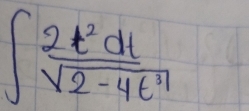 ∫ 2t² dt / √(2 - 4t³)